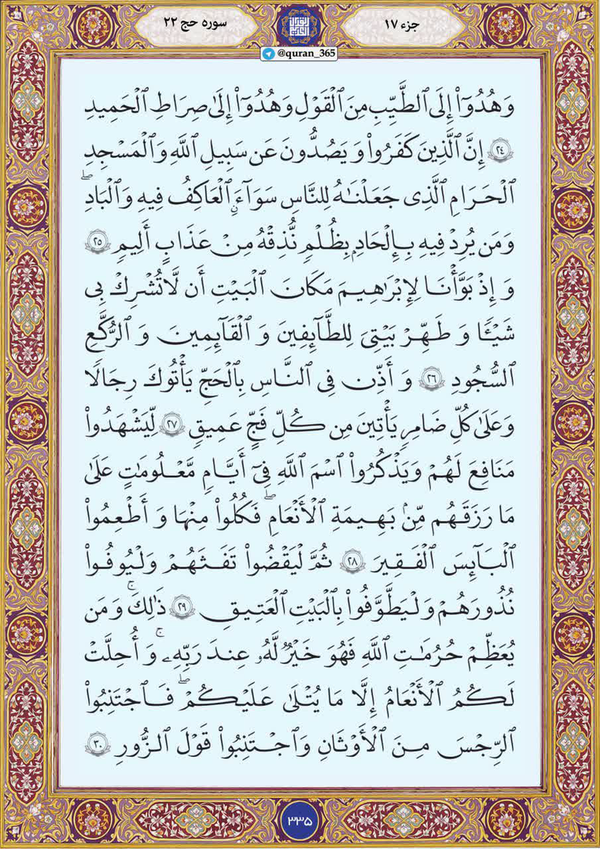 جزء ۱۷
سوره حج ۲۲
@quran_365
وَهُدُوٓاْ إِلَى ٱلطَّيِّبِ مِنَ ٱلْقَوْلِ وَهُدُوٓاْ إِلَىٰ صِرَاطِ ٱلْحَمِيدِ
۲٤ إِنَّ ٱلَّذِينَ كَفَرُواْ وَيَصُدُّونَ عَن سَبِيلِ ٱللَّهِ وَٱلْمَسْجِدِ
ٱلْحَرَامِ ٱلَّذِى جَعَلْنَٰهُ لِلنَّاسِ سَوَآءً ٱلْعَٰكِفُ فِيهِ وَٱلْبَادِ ۚ
وَمَن يُرِدْ فِيهِ بِإِلْحَادٍۭ بِظُلْمٍ نُّذِقْهُ مِنْ عَذَابٍ أَلِيمٍ ۲٥
وَإِذْ بَوَّأْنَا لِإِبْرَٰهِيمَ مَكَانَ ٱلْبَيْتِ أَن لَّا تُشْرِكْ بِى
شَيْـًٔا وَطَهِّرْ بَيْتِىَ لِلطَّآئِفِينَ وَٱلْقَآئِمِينَ وَٱلرُّكَّعِ
ٱلسُّجُودِ ۲٦ وَأَذِّن فِى ٱلنَّاسِ بِٱلْحَجِّ يَأْتُوكَ رِجَالًا
وَعَلَىٰ كُلِّ ضَامِرٍ يَأْتِينَ مِن كُلِّ فَجٍّ عَمِيقٍ ۲۷ لِّيَشْهَدُواْ
مَنَٰفِعَ لَهُمْ وَيَذْكُرُواْ ٱسْمَ ٱللَّهِ فِىٓ أَيَّامٍ مَّعْلُومَٰتٍ عَلَىٰ
مَا رَزَقَهُم مِّنۢ بَهِيمَةِ ٱلْأَنْعَٰمِ ۖ فَكُلُواْ مِنْهَا وَأَطْعِمُواْ
ٱلْبَآئِسَ ٱلْفَقِيرَ ۲۸ ثُمَّ لْيَقْضُواْ تَفَثَهُمْ وَلْيُوفُواْ
نُذُورَهُمْ وَلْيَطَّوَّفُواْ بِٱلْبَيْتِ ٱلْعَتِيقِ ۲۹ ذَٰلِكَ ۚ وَمَن
يُعَظِّمْ حُرُمَٰتِ ٱللَّهِ فَهُوَ خَيْرٌ لَّهُۥ عِندَ رَبِّهِۦ ۗ وَأُحِلَّتْ
لَكُمُ ٱلْأَنْعَٰمُ إِلَّا مَا يُتْلَىٰ عَلَيْكُمْ ۖ فَٱجْتَنِبُواْ
ٱلرِّجْسَ مِنَ ٱلْأَوْثَٰنِ وَٱجْتَنِبُواْ قَوْلَ ٱلزُّورِ ۳۰
۳۳۵